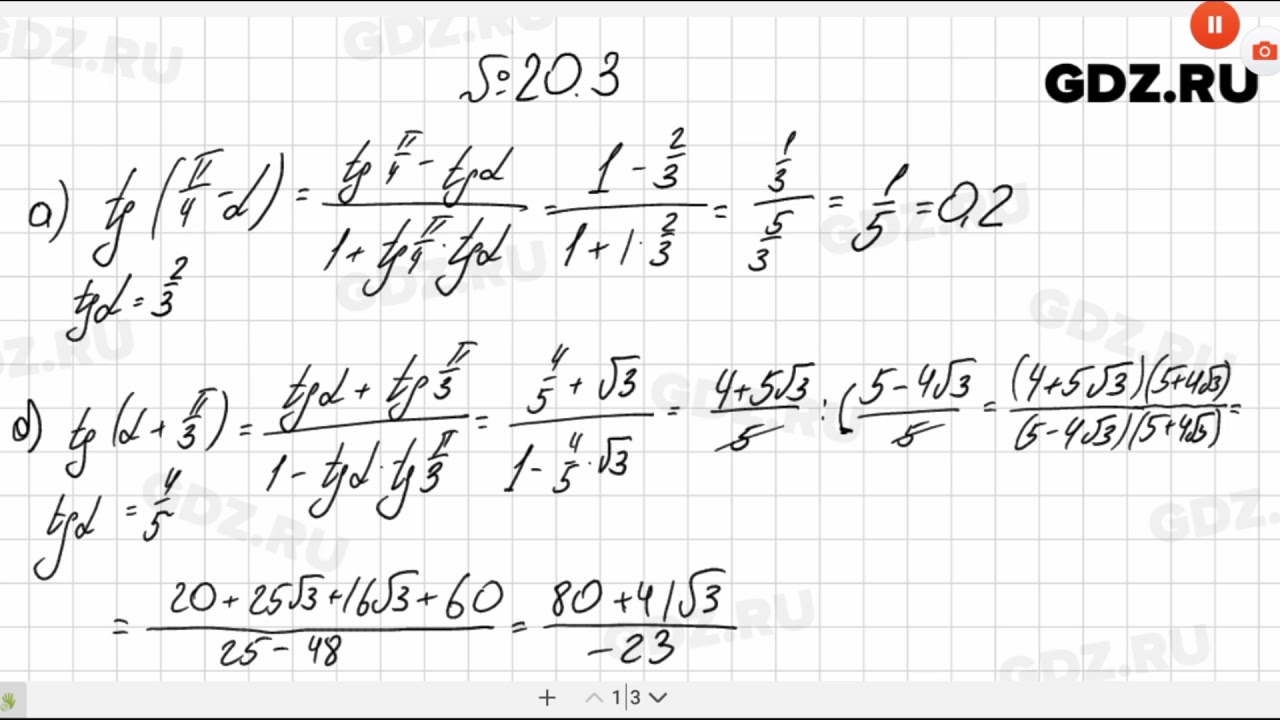 GDZ.RU
№20.3
а) tg(π/4 - α) = (tg π/4 - tgα)/(1 + tg π/4 · tgα) = (1 - 2/3)/(1 + 1 · 2/3) = (1/3)/(5/3) = 1/5 = 0,2
tgα = 2/3
б) tg(α + π/3) = (tgα + tg π/3)/(1 - tgα · tg π/3) = (4/5 + √3)/(1 - 4/5 · √3) = (4+5√3)/5 : (5-4√3)/5 = ((4+5√3)(5+4√3))/((5-4√3)(5+4√3)) =
tgα = 4/5
= (20 + 25√3 + 16√3 + 60)/(25 - 48) = (80 + 41√3)/(-23)
1|3